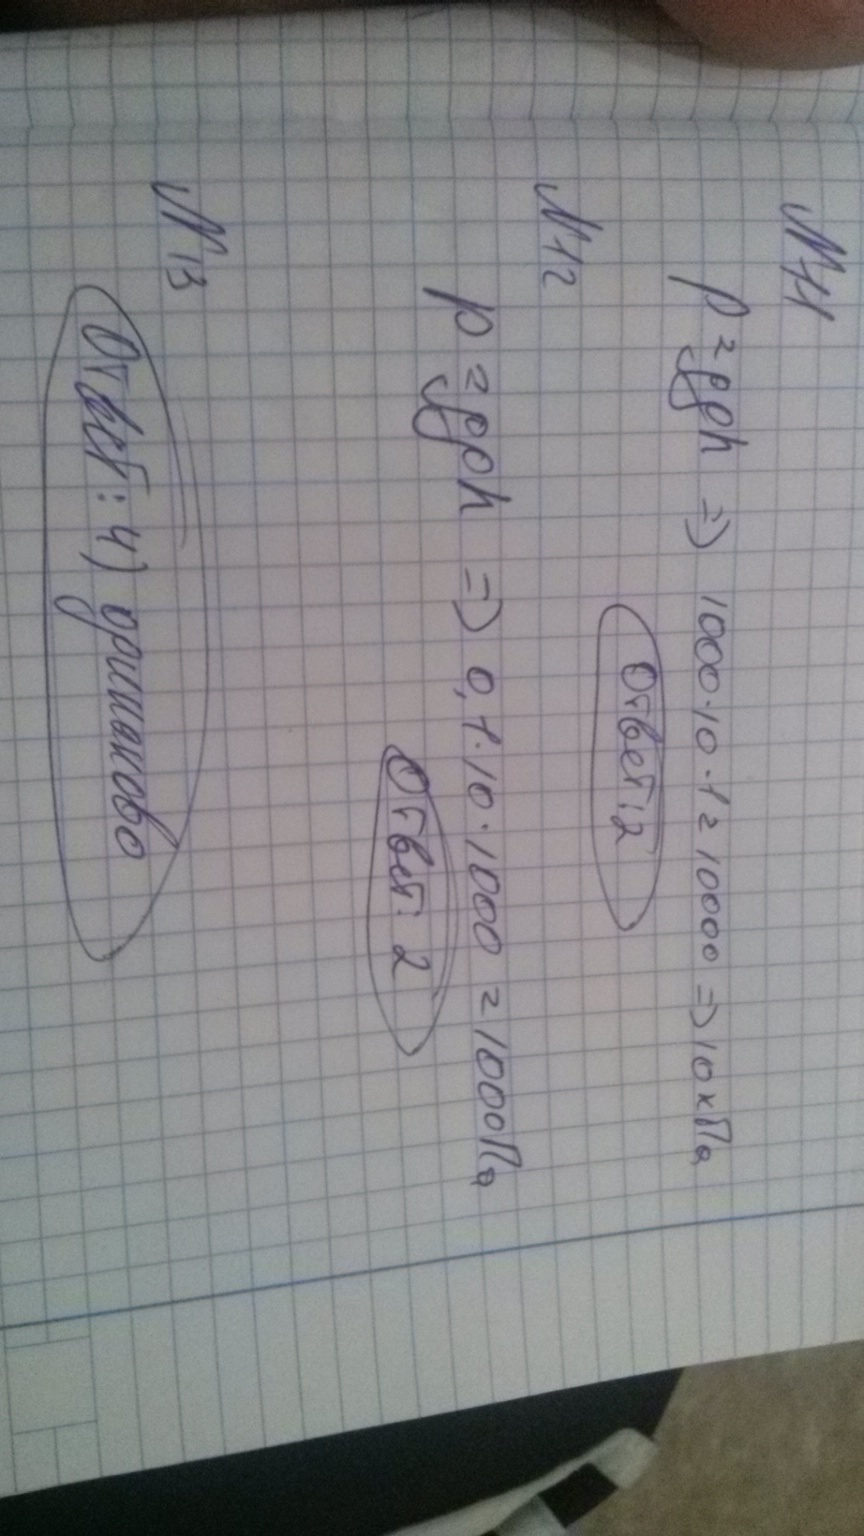 №11
p = ρgh => 1000·10·1 = 10000 => 10кПа
Ответ: 2
№12
p = ρgh => 0,1·10·1000 = 1000Па
Ответ: 2
№13
Ответ: 4) одинаково